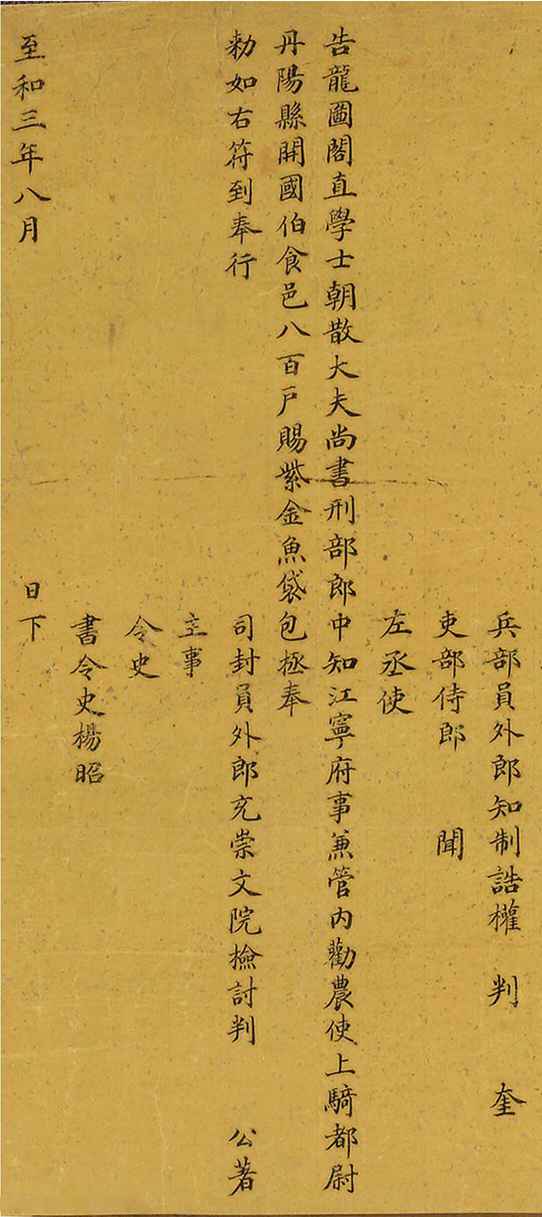 兵部員外郎知制誥權 判 奎
吏部侍郎 聞
左丞使
告龍圖閣直學士朝散大夫尚書刑部郎中知江寧府事兼管內勸農使上騎都尉
丹陽縣開國伯食邑八百戶賜紫金魚袋包拯奉
勑如右符到奉行
司封員外郎充崇文院檢討判 公著
主事
令史
書令史楊昭
至和三年八月 日下